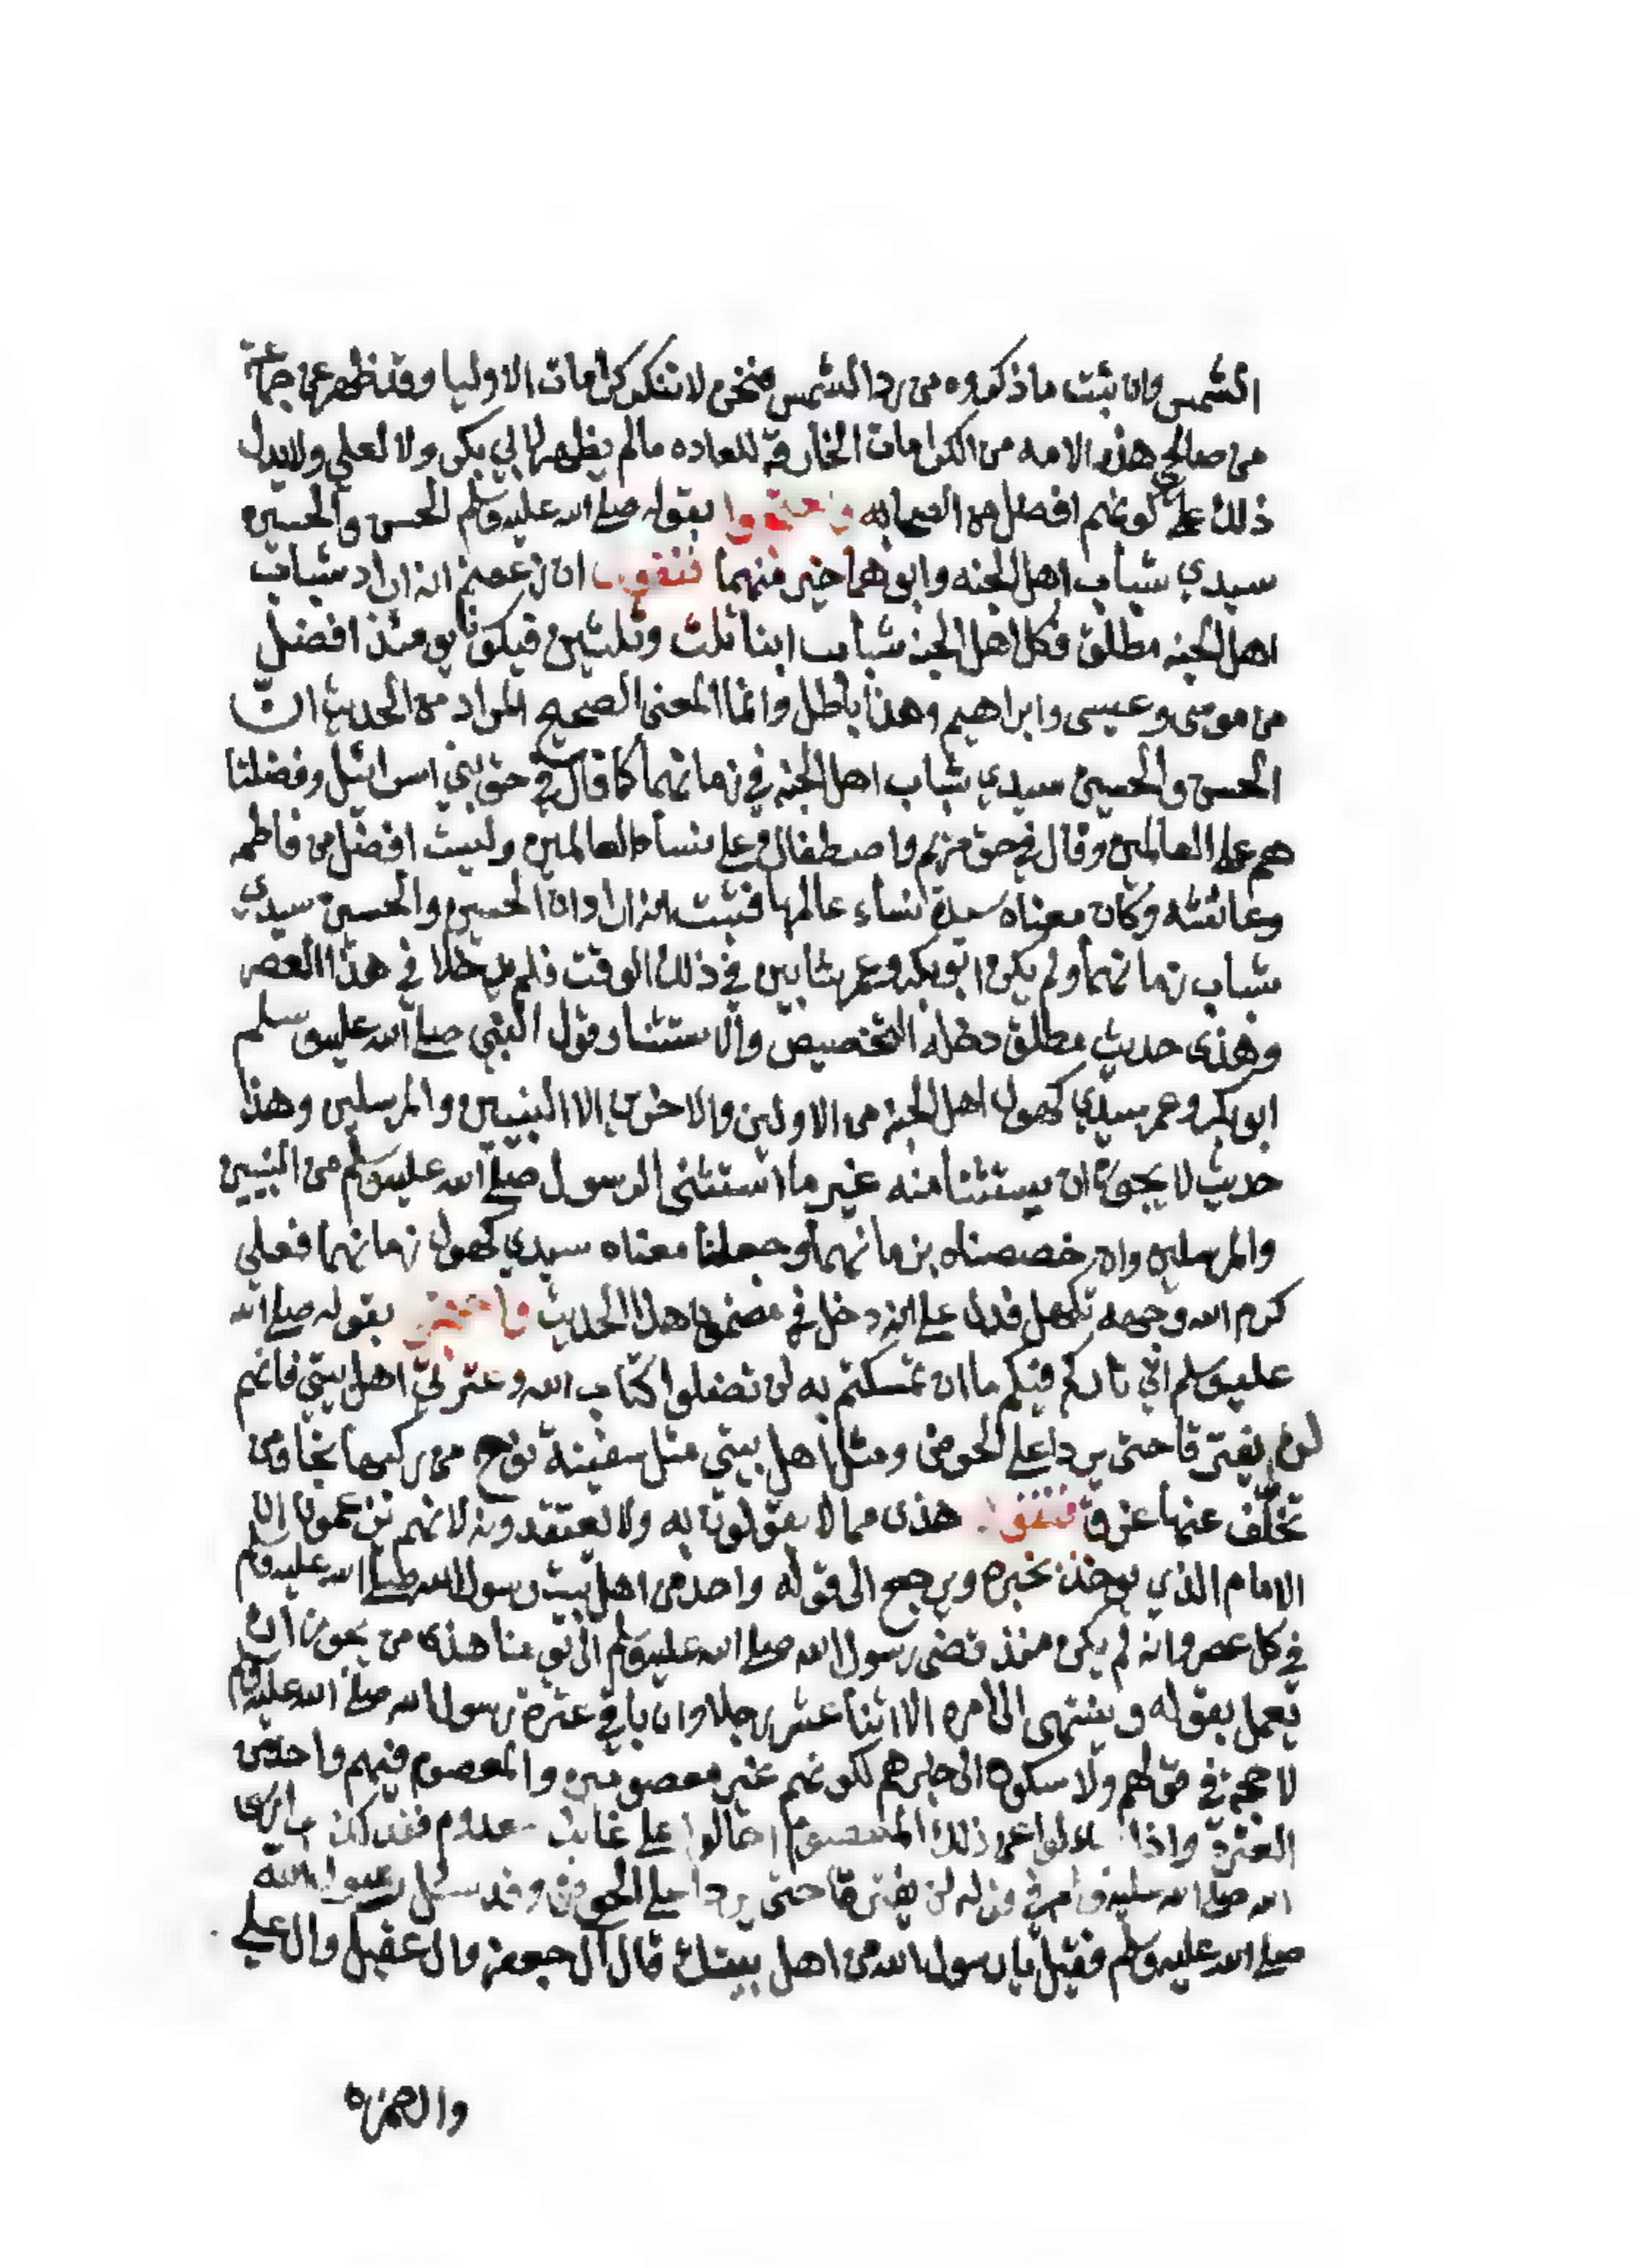 الشمس وان ثبت ما ذكروه من رد الشمس فنحن لا ننكر كرامات الاوليا وقد ظهر على جماعة
من صالحي هذه الامه من الكرامات الخارقة للعاده مالم يظهر لابي بكر ولا لعلي ولا يدل
ذلك على كونهم افضل من الصحابه واحتجوا بقوله صلى الله عليه وسلم الحسن والحسين
سيدي شباب اهل الجنه وابوهما خير منهما فنقول ان زعمتم انه اراد شباب
اهل الجنه مطلق فكل اهل الجنه شباب ابنا ثلث وثلثين فيكونا يومئذ افضل
من موسى وعيسى وابراهيم وهذا باطل وانما المعنى الصحيح المراد من الحديث ان
الحسن والحسين سيدي شباب اهل الجنه في زمانهما كما قال في حق بني اسرائيل وفضلنا
هم على العالمين وقال في حق مريم واصطفاك على نساء العالمين وليست افضل من فاطمه
وعائشه وكان معناه سيدة نساء عالمها فثبت انه اراد ان الحسن والحسين سيدي
شباب زمانهما ولم يكن ابو بكر وعمر شابين في ذلك الوقت فلم يدخلا في هذا العصر
وهذى حديث مطلق دخله التخصيص والاستثنا وقول النبي صلى الله عليه وسلم
ابو بكر وعمر سيدي كهول اهل الجنه من الاولين والاخرين الا النبيين والمرسلين وهذا
حديث لا يجوز ان يستثنا منه غير ما استثنى الرسول صلى الله عليه وسلم من النبيين
والمرسلين وان خصصناه بزمانهما وجعلنا معناه سيدي كهول زمانهما فعلي
كرم الله وجهه تكهل فدل على انه دخل في مضمون هذا الحديث واحتجوا بقوله صلى الله
عليه وسلم اني تارك فيكم ما ان تمسكتم به لن تضلوا كتاب الله وعترتي اهل بيتي فانهم
لن يفترقا حتى يردا على الحوض ومثل اهل بيتي مثل سفينة نوح من ركبها نجا ومن
تخلف عنها غرق فنقول هذى مما لا يقولون به ولا يعتقدونه لانهم يزعمون ان
الامام الذي يوخذ بخبره ويرجع الى قوله واحد من اهل بيت رسول الله صلى الله عليه وسلم
في كل عصر وانه لم يكن منذ قضى رسول الله صلى الله عليه وسلم الى يومنا هذى من يجوز ان
يعمل بقوله وينتهى الى امره الا اثنا عشر رجلا وان باقي عترة رسول الله صلى الله عليه وسلم
لا حجة في قولهم ولا سكون الى خبرهم لكونهم غير معصومين والمعصوم فيهم واحد من
العترة واذا على ذلك المعصوم احالوا على غائب معدوم فقد
الله صلى الله عليه وسلم في قوله لن يفترقا حتى يردا على الحوض وقد سئل رسول الله
صلى الله عليه وسلم فقيل يا رسول الله من اهل بيتك قال آل جعفر وال عقيل وال علي
وال حمزه